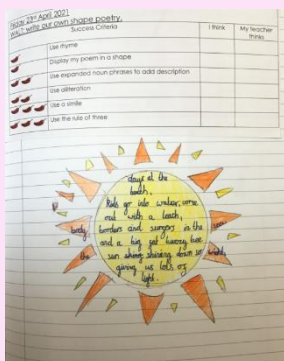 Friday 23rd April 2021
WALT: write our own shape poetry.
Success Criteria
I think
My teacher thinks
Use rhyme
Display my poem in a shape
Use expanded noun phrases to add description
Use alliteration
Use a simile
Use the rule of three
days at the
beach.
Kids go into water, come
out with a leach,
borders and surgers in the
and a big yet luvery bee
sun shing shining down us
giving us lots of
light.
the